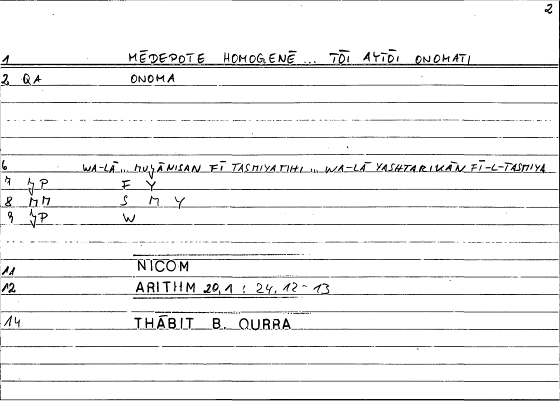 2
1 MĒDEPOTE HOMOGENĒ ... TŌI AYTŌI ONOMATI
2 QA ONOMA
6 WA-LĀ ... MUǦĀNISAN FĪ TASMIYATIHI ... WA-LĀ YASHTARIKĀN FĪ-L-TASMIYA
7 F Y
8 MM S M Y
9 W
11 NICOM
12 ARITHM 20,1 : 24,12-13
14 THĀBIT B. QURRA